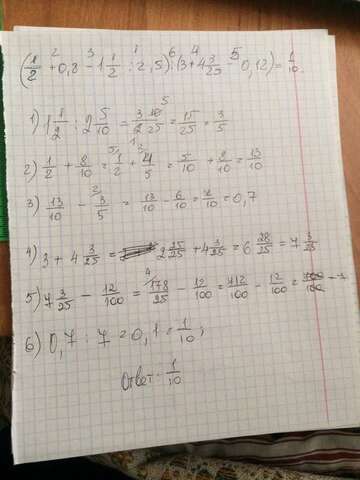 2 3 1 6 4 5
(1/2 + 0,8 - 1 1/2 : 2,5) : (3 + 4 3/25 - 0,12) = 1/10.
1) 1 1/2 : 2 5/10 = 3·10/2·25 = 15/25 = 3/5
2) 1/2 + 8/10 = 1/2 + 4/5 = 5/10 + 8/10 = 13/10
3) 13/10 - 3/5 = 13/10 - 6/10 = 7/10 = 0,7
4) 3 + 4 3/25 = 2 25/25 + 4 3/25 = 6 28/25 = 7 3/25
5) 7 3/25 - 12/100 = 178/25 - 12/100 = 712/100 - 12/100 = 700/100 = 7
6) 0,7 : 7 = 0,1 = 1/10;
Ответ: 1/10